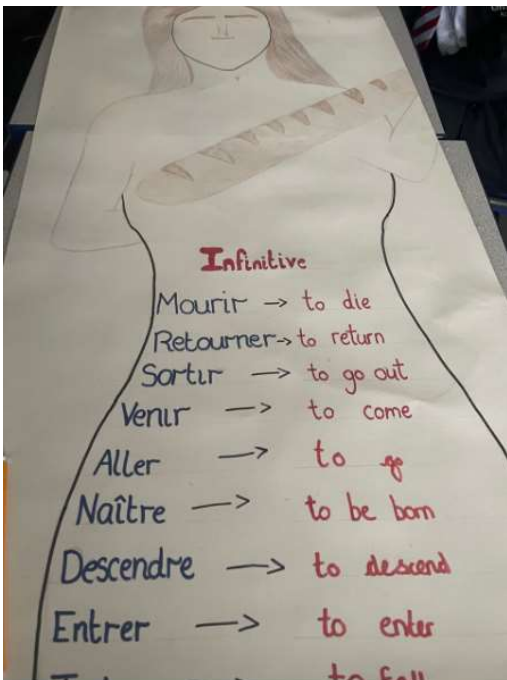 Infinitive
Mourir → to die
Retourner → to return
Sortir → to go out
Venir → to come
Aller → to go
Naître → to be born
Descendre → to descend
Entrer → to enter
to fall